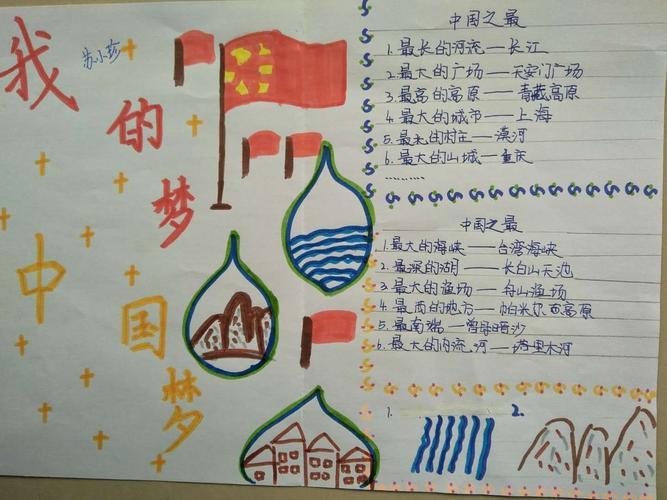 我的梦
中国梦
苏小珍
中国之最
1.最长的河流——长江
2.最大的广场——天安门广场
3.最高的高原——青藏高原
4.最大的城市——上海
5.最
6.最大的山城——重庆
………
中国之最
1.最大的海峡——台湾海峡
2.最深的湖——长白山天池
3.最大的渔场——舟山渔场
4.最西的地方——帕米尔高原
5.最南端——曾母暗沙
6.最大的内流河——塔里木河
1.
2.